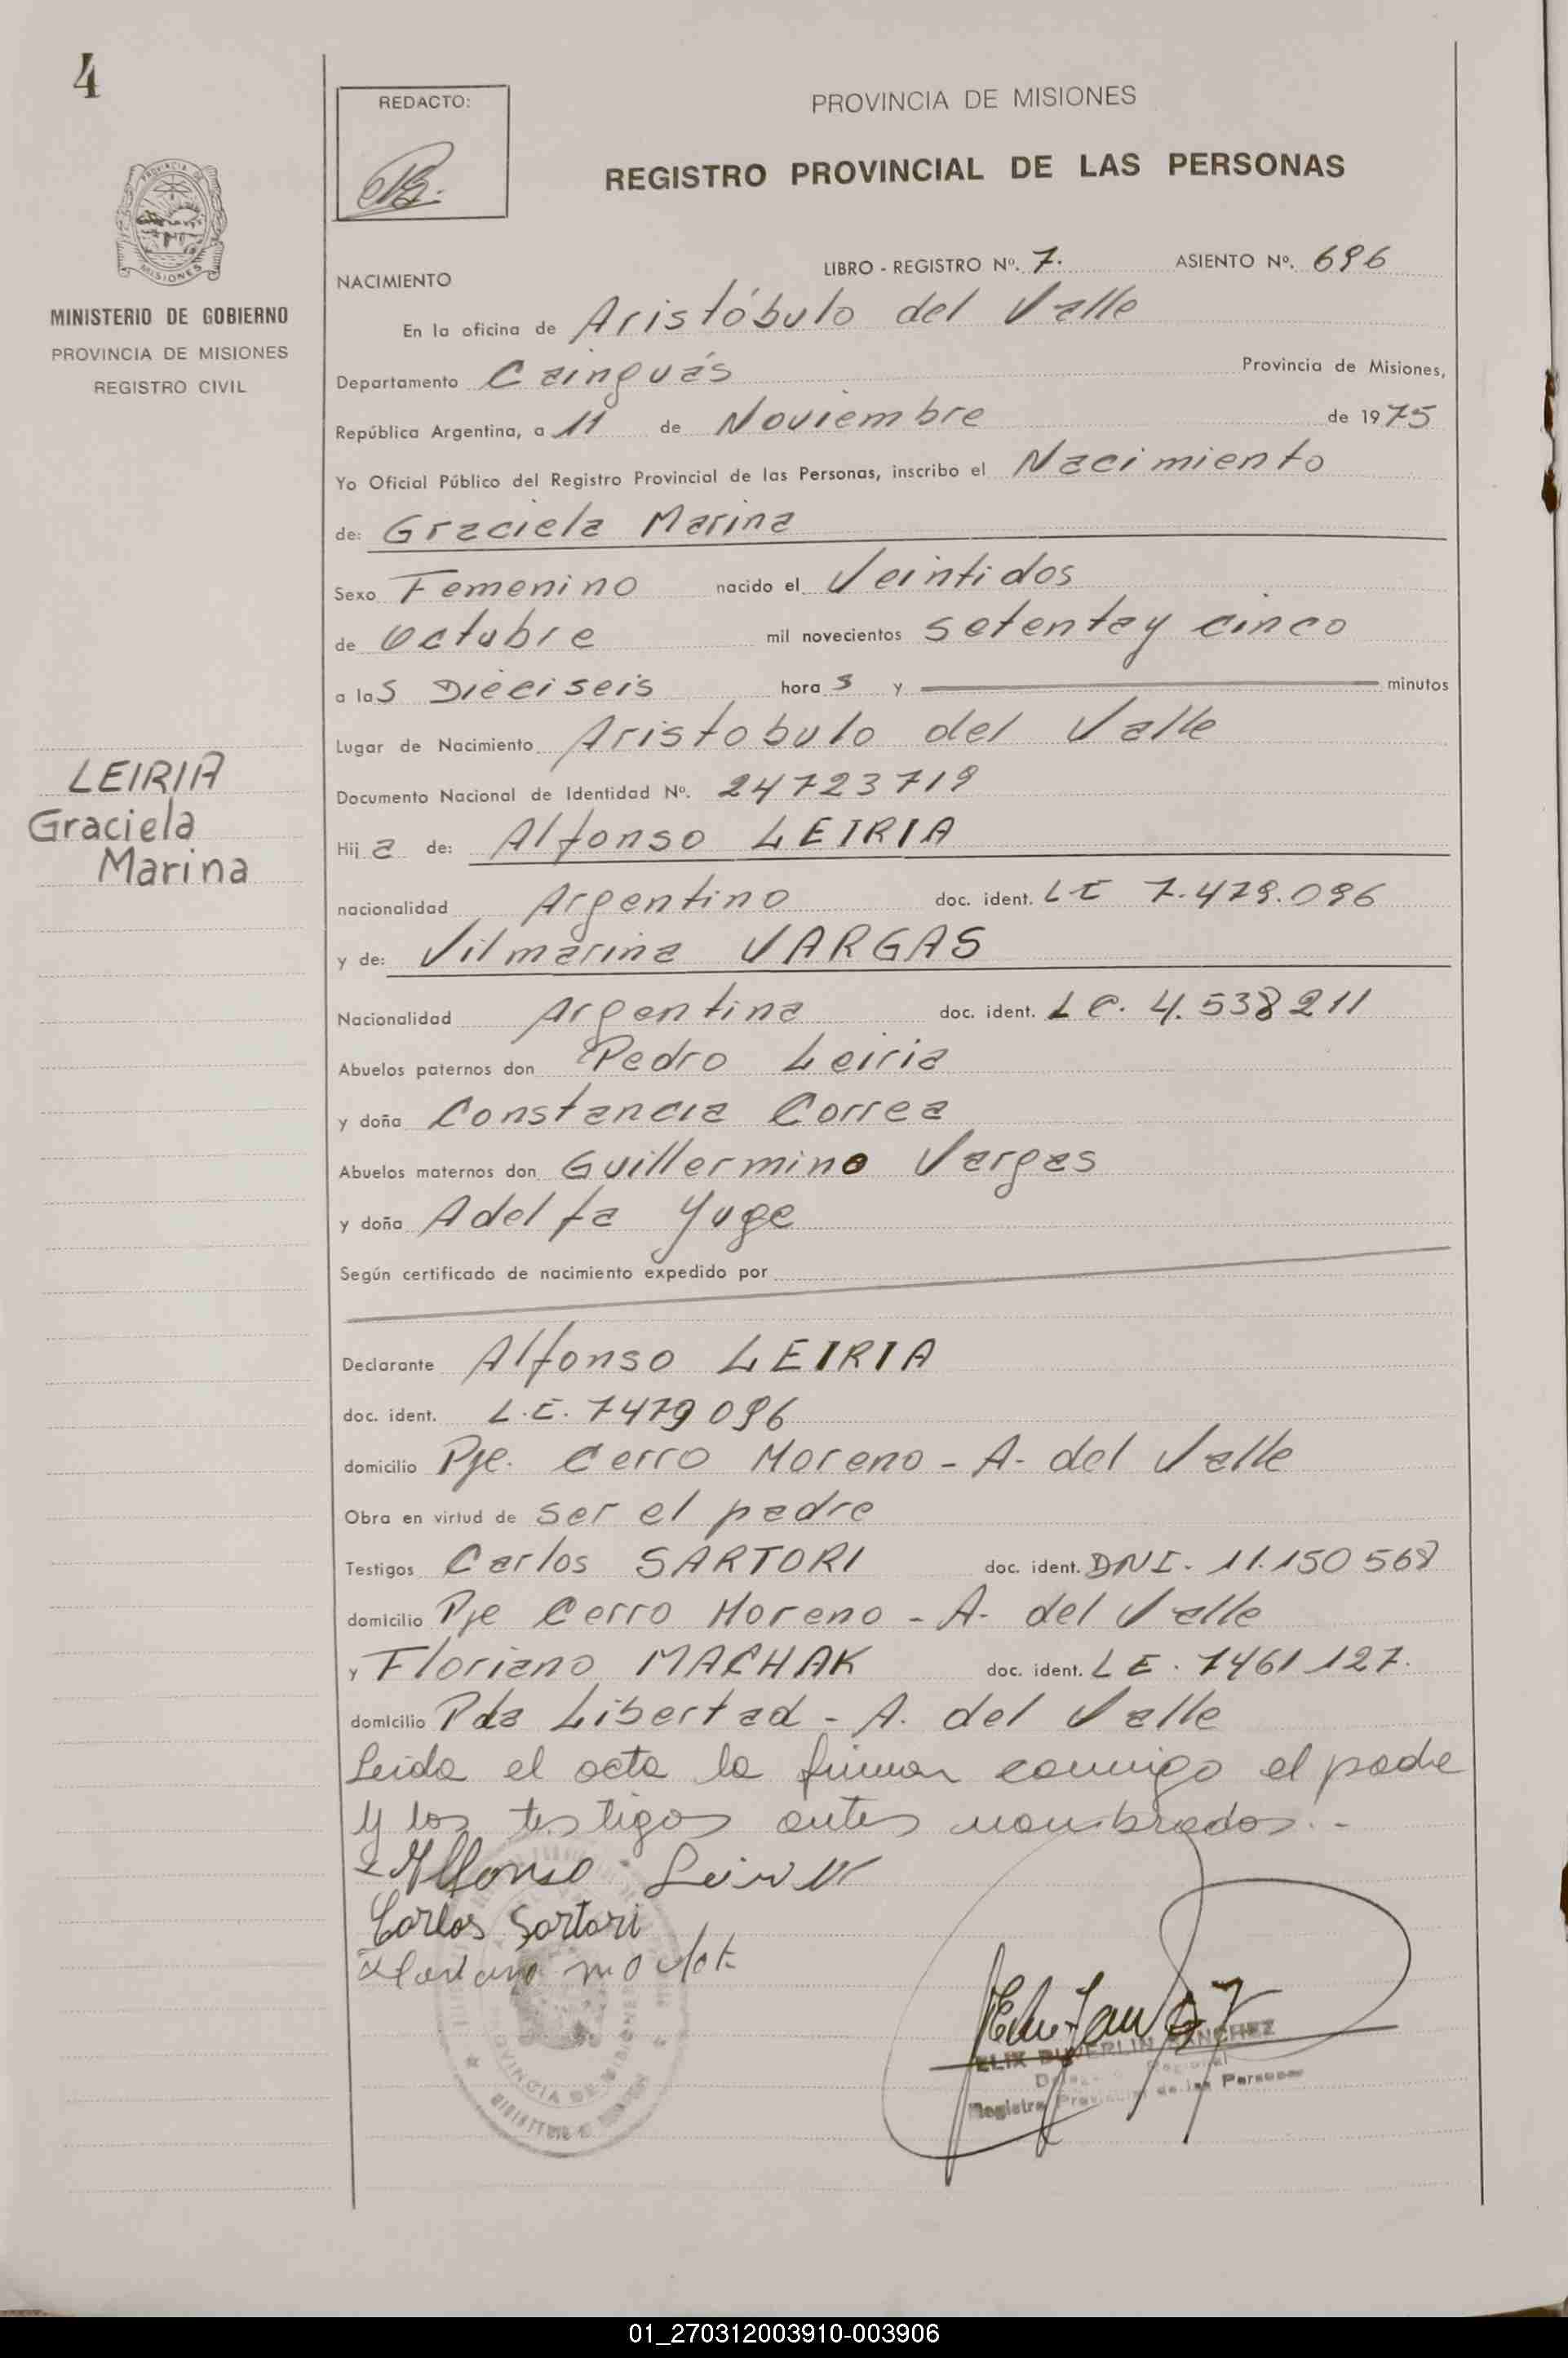 4
REDACTO:
PROVINCIA DE MISIONES
REGISTRO PROVINCIAL DE LAS PERSONAS
MISIONES
MINISTERIO DE GOBIERNO
PROVINCIA DE MISIONES
REGISTRO CIVIL
LEIRIA
Graciela
Marina
NACIMIENTO
LIBRO - REGISTRO Nº. 7. ASIENTO Nº. 696
En la oficina de Aristóbulo del Valle
Departamento Cainguás Provincia de Misiones,
República Argentina, a 11 de Noviembre de 1975
Yo Oficial Público del Registro Provincial de las Personas, inscribo el Nacimiento
de: Graciela Marina
Sexo Femenino nacido el Veintidos
de Octubre mil novecientos setentay cinco
a las Dieciseis horas y minutos
Lugar de Nacimiento Aristobulo del Valle
Documento Nacional de Identidad Nº. 24723719
Hija de: Alfonso LEIRIA
nacionalidad Argentino doc. ident. LE 7.479.096
y de: Vilmarina VARGAS
Nacionalidad Argentina doc. ident. LC. 4.538211
Abuelos paternos don Pedro Leiria
y doña Constancia Correa
Abuelos maternos don Guillermino Vargas
y doña Adelfa Yuge
Según certificado de nacimiento expedido por
Declarante Alfonso LEIRIA
doc. ident. L.E. 7479096
domicilio Pje. Cerro Moreno - A. del Valle
Obra en virtud de ser el padre
Testigos Carlos SARTORI doc. ident. DNI. 11.150568
domicilio Pje Cerro Moreno - A. del Valle
y Floriano MACHAK doc. ident. LE. 7461127.
domicilio Pda Libertad - A. del Valle
Leida el acta la firman conmigo el padre
y los testigos antes nombrados.-
Alfonso
Carlos Sartori
SANCHEZ
Registro de las Personas
01_270312003910-003906